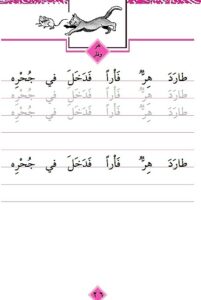 طارَدَ هِرٌّ فَأراً فَدَخَلَ في جُحْرِه
طارَدَ هِرٌّ فَأراً فَدَخَلَ في جُحْرِه
طارَدَ هِرٌّ فَأراً فَدَخَلَ في جُحْرِه
طارَدَ هِرٌّ فَأراً فَدَخَلَ في جُحْرِه
٢٦